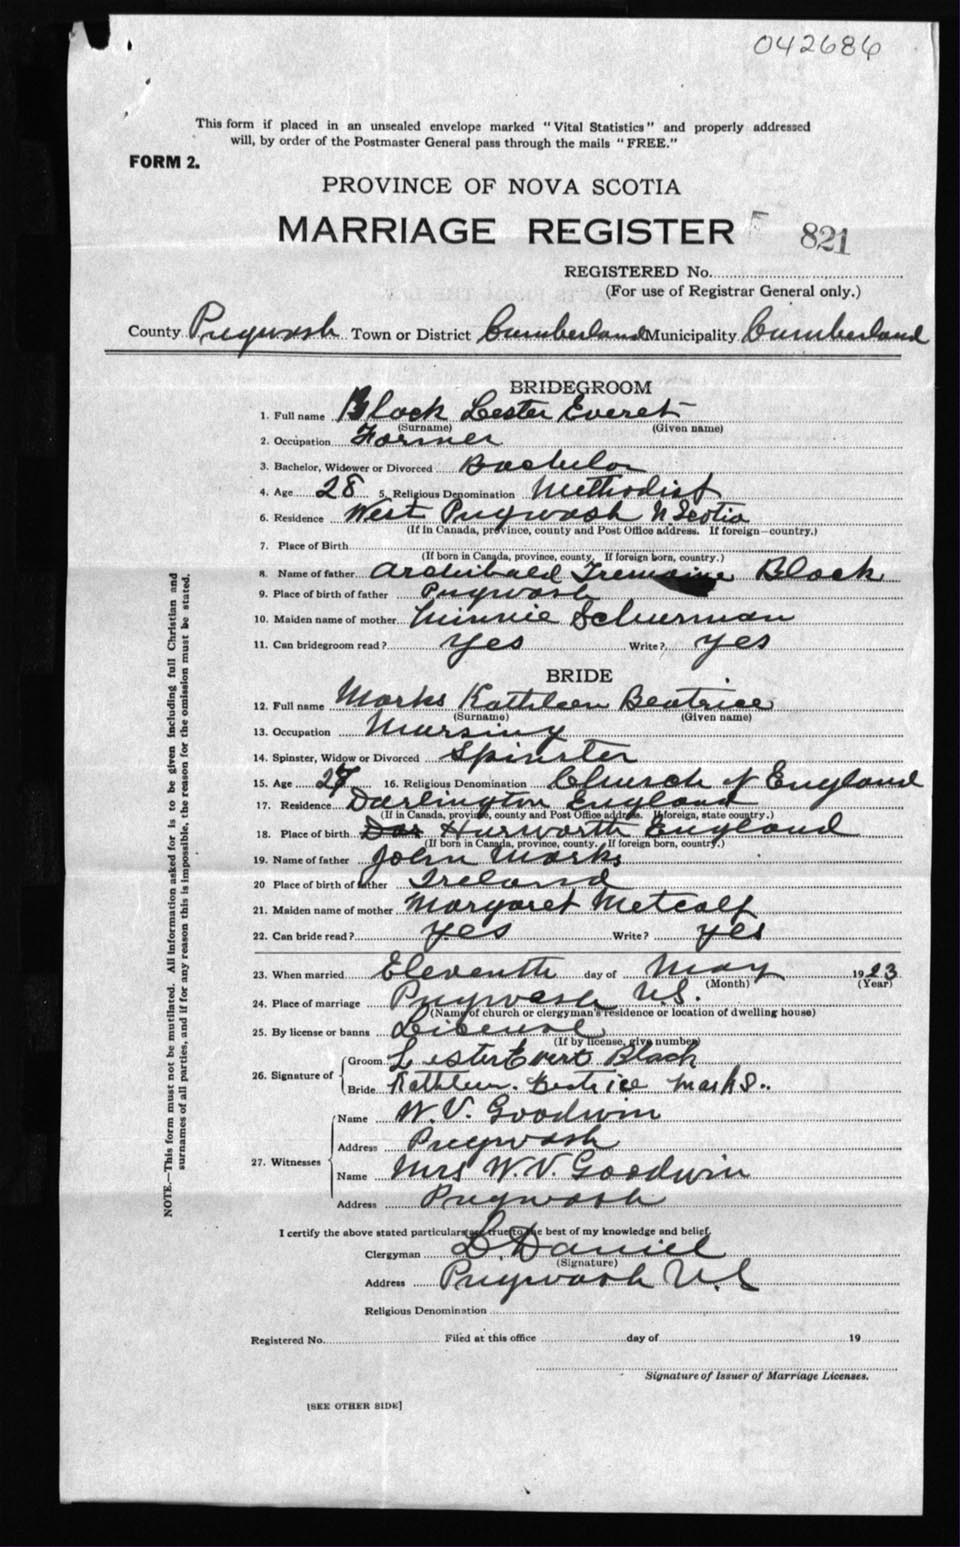 042686
This form if placed in an unsealed envelope marked "Vital Statistics" and properly addressed
will, by order of the Postmaster General pass through the mails "FREE."
FORM 2.
PROVINCE OF NOVA SCOTIA
MARRIAGE REGISTER 821
REGISTERED No.
(For use of Registrar General only.)
County Pugwash Town or District Cumberland Municipality Cumberland
BRIDEGROOM
1. Full name Black Lester Everet
(Surname) (Given name)
2. Occupation Farmer
3. Bachelor, Widower or Divorced Bachelor
4. Age 28 5. Religious Denomination Methodist
6. Residence West Pugwash N. Scotia
(If in Canada, province, county and Post Office address. If foreign—country.)
7. Place of Birth
(If born in Canada, province, county. If foreign born, country.)
8. Name of father Archibald Tremaine Black
9. Place of birth of father Pugwash
10. Maiden name of mother Minnie Schurman
11. Can bridegroom read? Yes Write? Yes
BRIDE
12. Full name Marks Kathleen Beatrice
(Surname) (Given name)
13. Occupation Nursing
14. Spinster, Widow or Divorced Spinster
15. Age 27 16. Religious Denomination Church of England
17. Residence Darlington England
(If in Canada, province, county and Post Office address. If foreign, state country.)
18. Place of birth Dar Hurworth England
(If born in Canada, province, county. If foreign born, country.)
19. Name of father John Marks
20 Place of birth of father Ireland
21. Maiden name of mother Margaret Metcalf
22. Can bride read? yes Write? yes
23. When married Eleventh day of May 1923
(Month) (Year)
24. Place of marriage Pugwash N.S.
(Name of church or clergyman's residence or location of dwelling house)
25. By license or banns
(If by license, give number)
26. Signature of Groom Lester Evert Black
Bride Kathleen. Beatrice Marks.
27. Witnesses Name W. V. Goodwin
Address Pugwash
Name Mrs W. V. Goodwin
Address Pugwash
I certify the above stated particulars are true to the best of my knowledge and belief.
Clergyman L. Daniel
(Signature)
Address Pugwash N.S
Religious Denomination
Registered No. Filed at this office day of 19
Signature of Issuer of Marriage Licenses.
[SEE OTHER SIDE]
NOTE.—This form must not be mutilated. All information asked for is to be given including full Christian and
surnames of all parties, and if for any reason this is impossible, the reason for the omission must be stated.